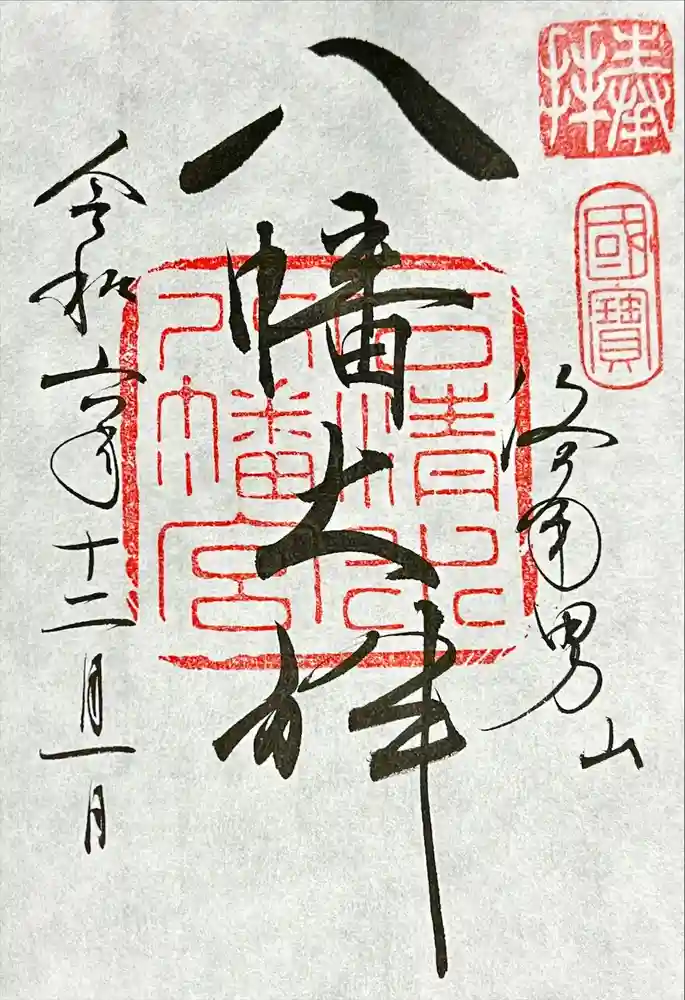 奉拝
國寶
洛南男山
八幡大神
石清水八幡宮
令和六年十二月一日